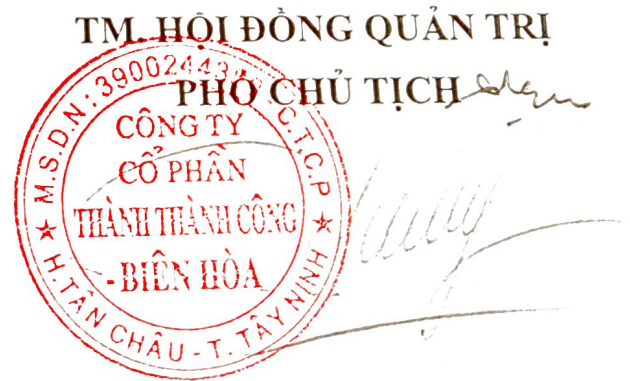 TM. HỘI ĐỒNG QUẢN TRỊ
PHÓ CHỦ TỊCH
M.S.D.N: 39002443 C.T.C.P
CÔNG TY
CỔ PHẦN
THÀNH THÀNH CÔNG
- BIÊN HÒA
H. TÂN CHÂU - T. TÂY NINH